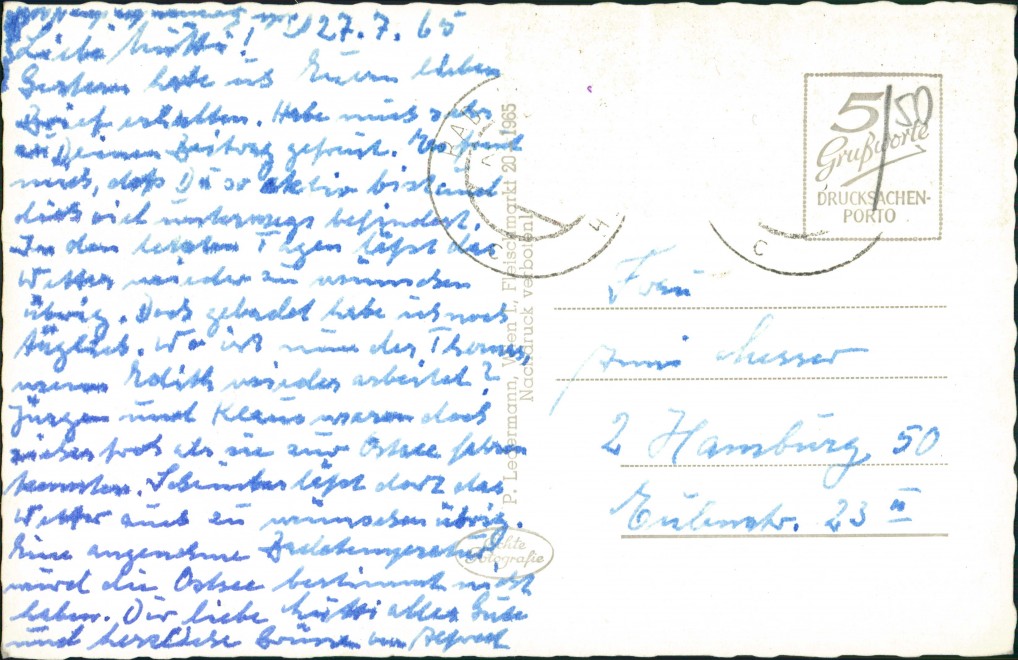 27.7.65
Liebe Mutti!
Gestern habe ich Euern lieben
Brief erhalten. Habe mich sehr
Deinen Beitrag gefreut. Es freut
mich, daß Du so aktiv bist und
dich viel unterwegs befindest.
In den letzten Tagen läßt das
Wetter wieder zu wünschen
übrig. Doch gebadet habe ich noch
täglich. Wo ist nun der Thomas,
wenn Edith wieder arbeitet?
Jürgen und Klaus waren doch
sicher froh als sie zur Ostsee fahren
konnten. Scheinbar läßt dort das
Wetter auch zu wünschen übrig.
Eine angenehme Badetemperatur
wird die Ostsee bestimmt nicht
haben. Dir liebe Mutti alles Gute
und herzliche Grüße von Alfred
P. Ledermann, Wien I., Fleischmarkt 20 1965
Nachdruck verboten!
Echte
Fotografie
5/50
Grußworte
DRUCKSACHEN-
PORTO
Frau
2 Hamburg 50
Eulenstr. 23 II